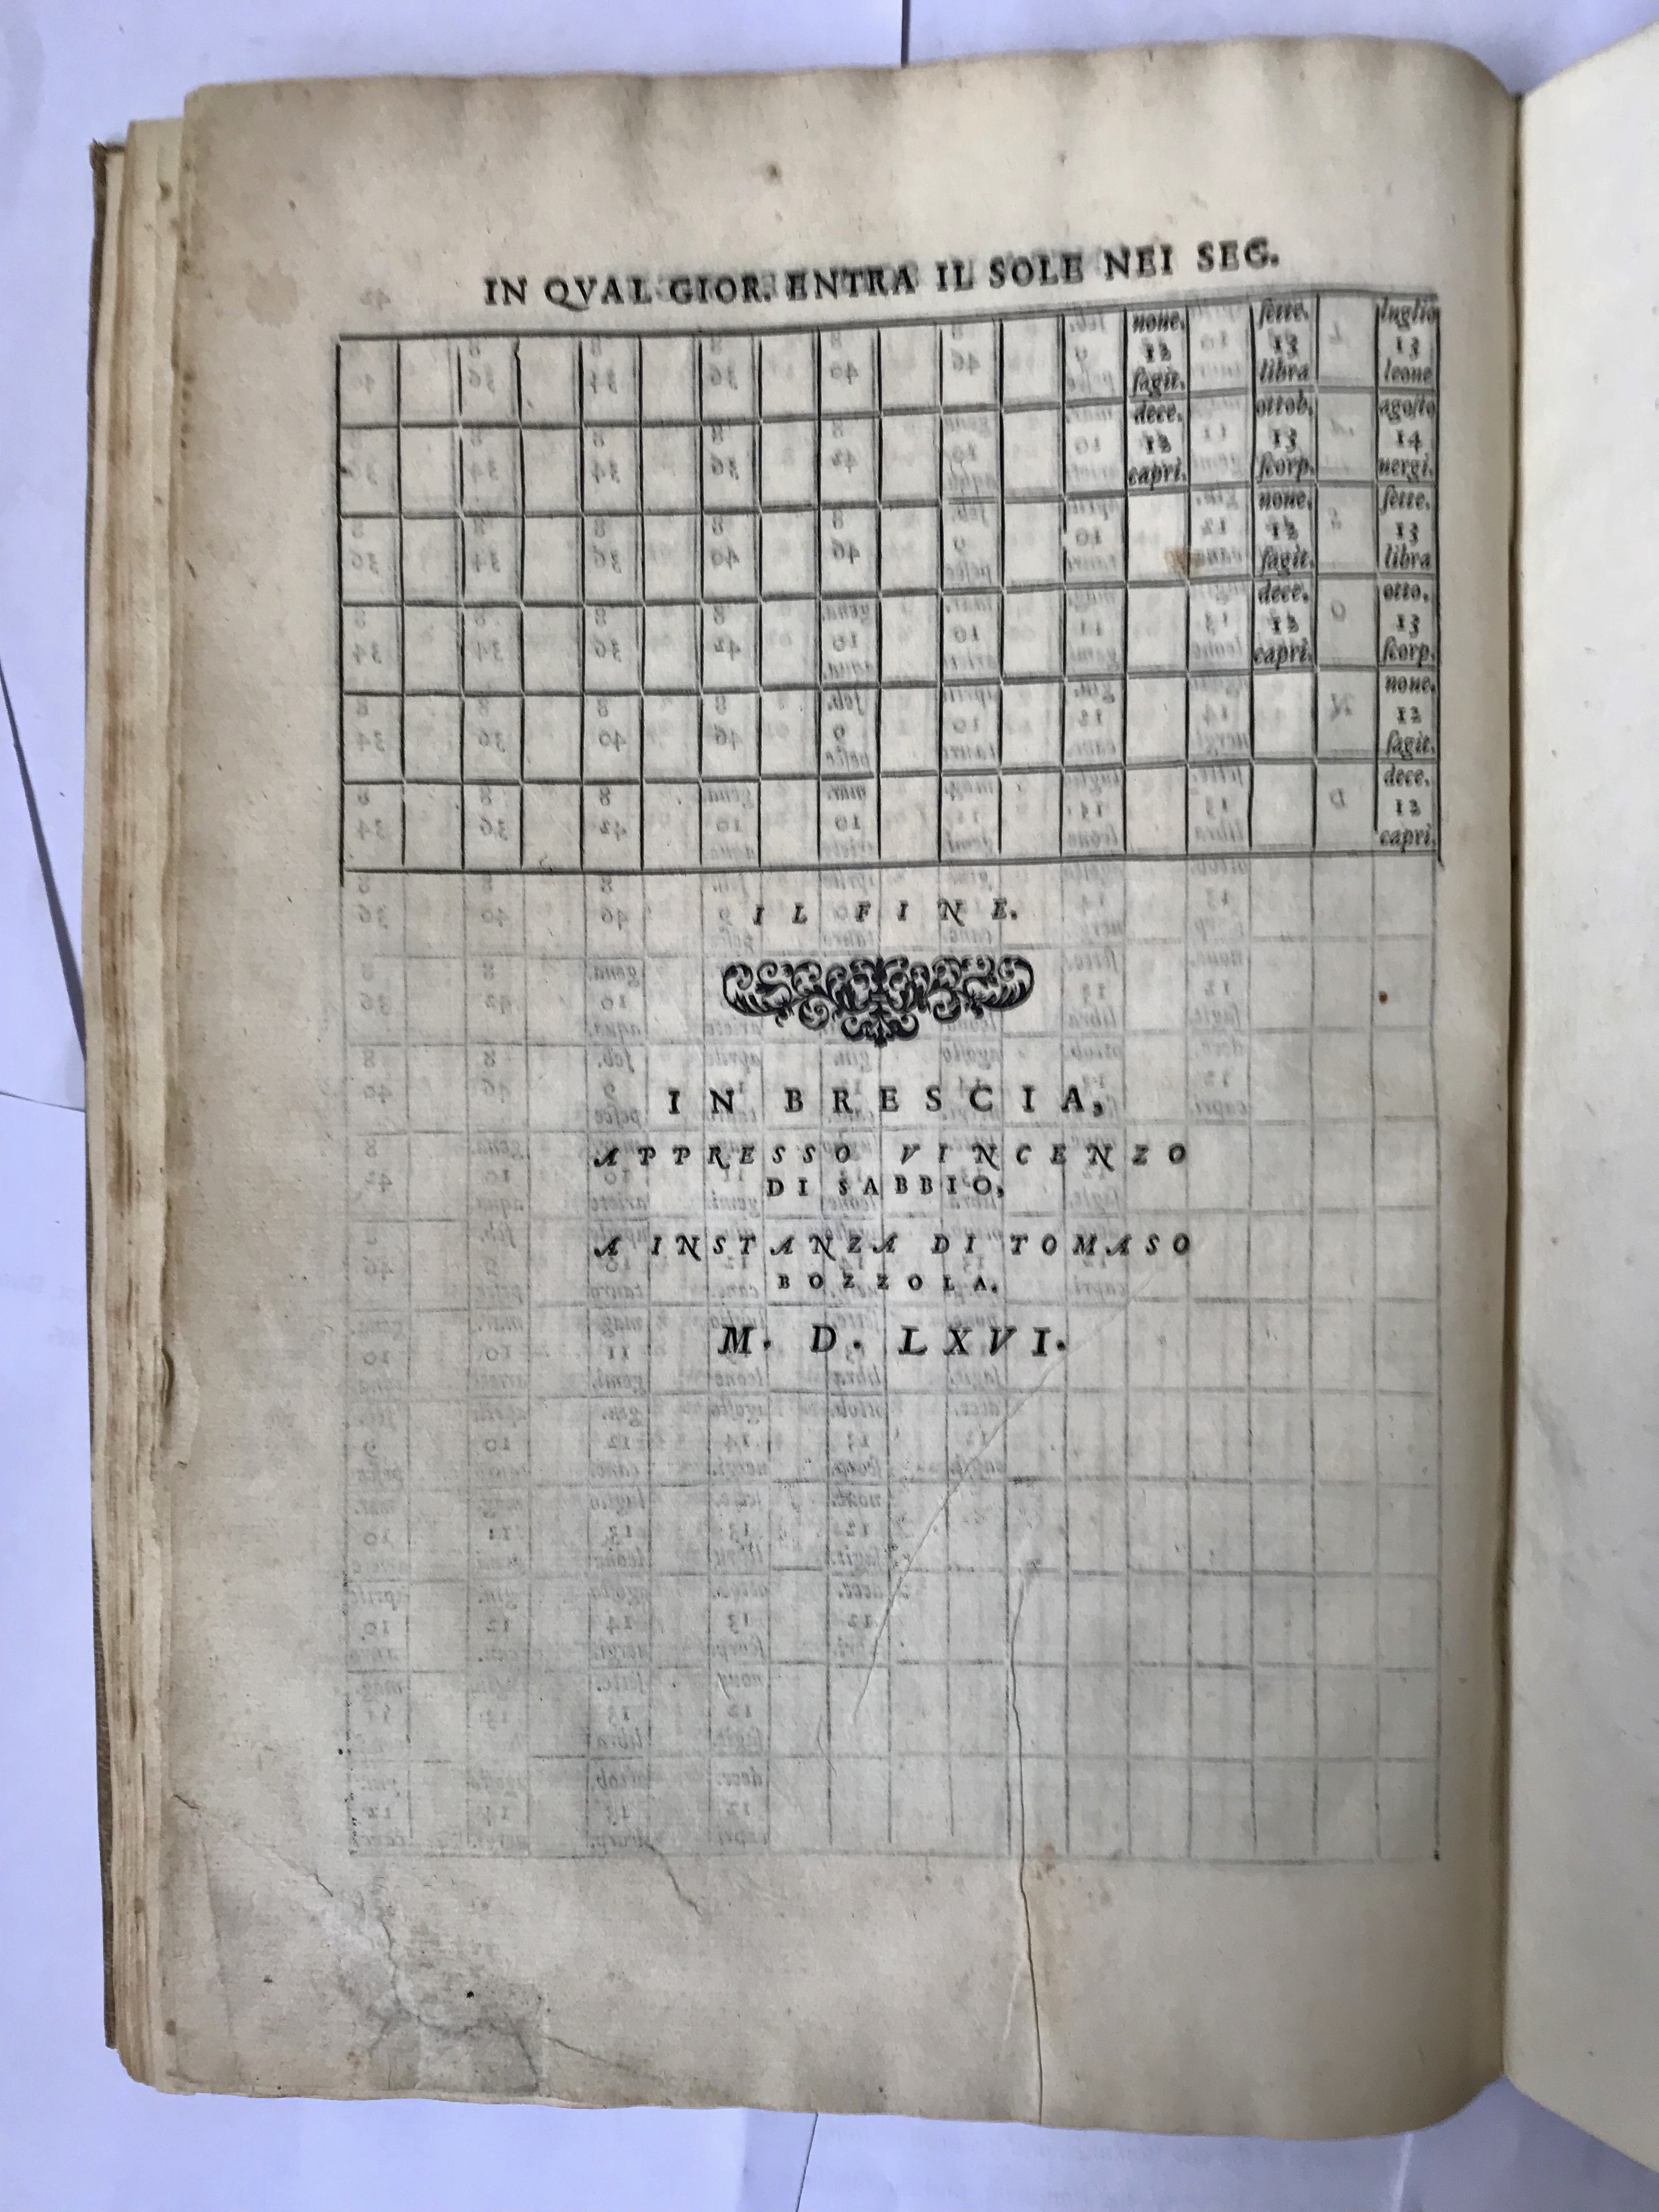 IN QVAL GIOR. ENTRA IL SOLE NEI SEG.
noue. sette. luglio
12 13 13
sagit. libra leone
dece. ottob. agosto
12 13 14
capri. scorp. uergi.
noue. sette.
12 13
sagit. libra
dece. otto.
12 13
capri. scorp.
noue.
12
sagit.
dece.
12
capri.
IL FINE.
IN BRESCIA,
APPRESSO VINCENZO
DI SABBIO,
A INSTANZA DI TOMASO
BOZZOLA.
M. D. LXVI.